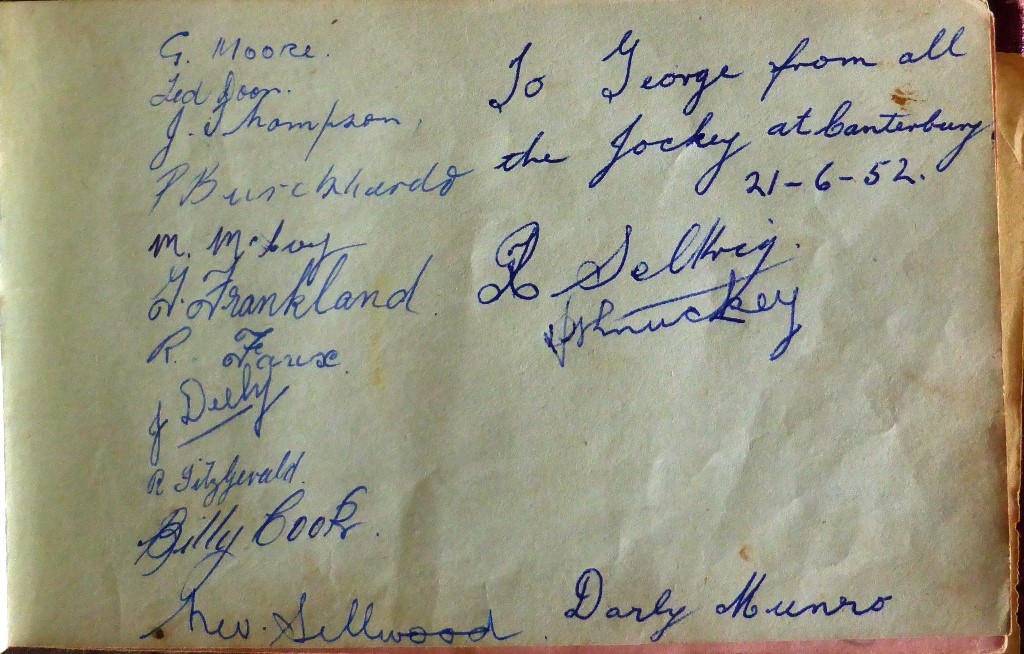 G. Moore.
Ted Doon.
J. Thompson,
P Burckhardt
M. McCoy
T. Frankland
R. Faux.
J Deely
R Fitzgerald.
Billy Cook.
Nev. Sellwood.
To George from all
the Jockey at Canterbury
21-6-52.
R Selkrig.
Shuckey
Darby Munro